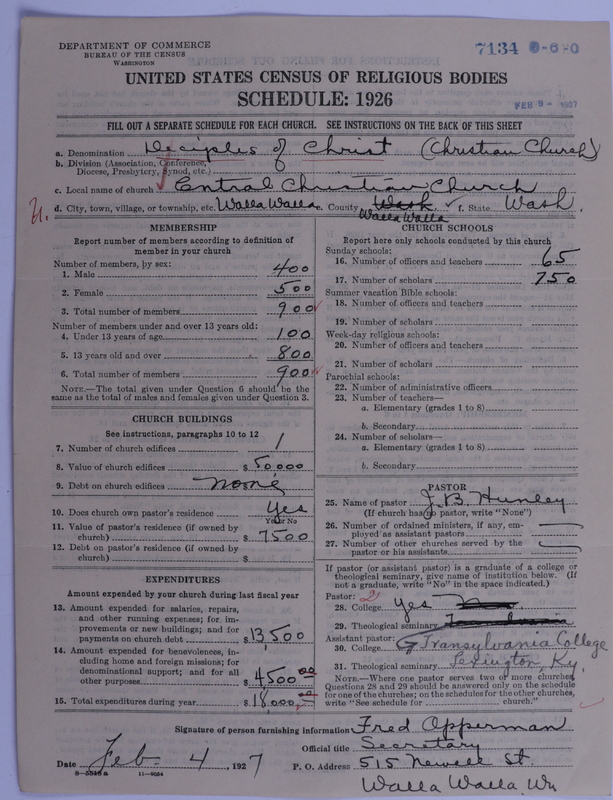 DEPARTMENT OF COMMERCE
BUREAU OF THE CENSUS
WASHINGTON
7134 6-6 0
UNITED STATES CENSUS OF RELIGIOUS BODIES
SCHEDULE: 1926
FEB 9 - 1927
FILL OUT A SEPARATE SCHEDULE FOR EACH CHURCH. SEE INSTRUCTIONS ON THE BACK OF THIS SHEET
a. Denomination Deciples of Christ (Christian Church)
b. Division (Association, Conference, Diocese, Presbytery, Synod, etc.)
c. Local name of church Central Christian Church
d. City, town, village, or township, etc. Walla Walla e. County Wash Walla Walla f. State Wash.
MEMBERSHIP
Report number of members according to definition of
member in your church
Number of members, by sex:
1. Male 400
2. Female 500
3. Total number of members 900
Number of members under and over 13 years old:
4. Under 13 years of age 100
5. 13 years old and over 800
6. Total number of members 900
NOTE.—The total given under Question 6 should be the
same as the total of males and females given under Question 3.
CHURCH BUILDINGS
See instructions, paragraphs 10 to 12
7. Number of church edifices 1
8. Value of church edifices $50,000
9. Debt on church edifices none
10. Does church own pastor's residence Yes
Yes or No
11. Value of pastor's residence (if owned by
church) $7500
12. Debt on pastor's residence (if owned by
church) $
EXPENDITURES
Amount expended by your church during last fiscal year
13. Amount expended for salaries, repairs,
and other running expenses; for im-
provements or new buildings; and for
payments on church debt $13500
14. Amount expended for benevolences, in-
cluding home and foreign missions; for
denominational support; and for all
other purposes $4500 00
15. Total expenditures during year $18,000 00
CHURCH SCHOOLS
Report here only schools conducted by this church
Sunday schools:
16. Number of officers and teachers 65
17. Number of scholars 750
Summer vacation Bible schools:
18. Number of officers and teachers
19. Number of scholars
Week-day religious schools:
20. Number of officers and teachers
21. Number of scholars
Parochial schools:
22. Number of administrative officers
23. Number of teachers—
a. Elementary (grades 1 to 8)
b. Secondary
24. Number of scholars—
a. Elementary (grades 1 to 8)
b. Secondary
PASTOR
25. Name of pastor J. B. Hunley
(If church has no pastor, write "None")
26. Number of ordained ministers, if any, em-
ployed as assistant pastors
27. Number of other churches served by the
pastor or his assistants
If pastor (or assistant pastor) is a graduate of a college or
theological seminary, give name of institution below. (If
not a graduate, write "No" in the space indicated.)
Pastor: 2
28. College Yes
29. Theological seminary
Assistant pastor:
30. College Transylvania College
31. Theological seminary Lexington, Ky.
NOTE.—Where one pastor serves two or more churches,
Questions 28 and 29 should be answered only on the schedule
for one of the churches; on the schedules for the other churches,
write "See schedule for church."
Signature of person furnishing information Fred Opperman
Official title Secretary
Date Feb. 4, 1927 P. O. Address 515 Newell St.
Walla Walla, Wn
8—5515 a 11—9054